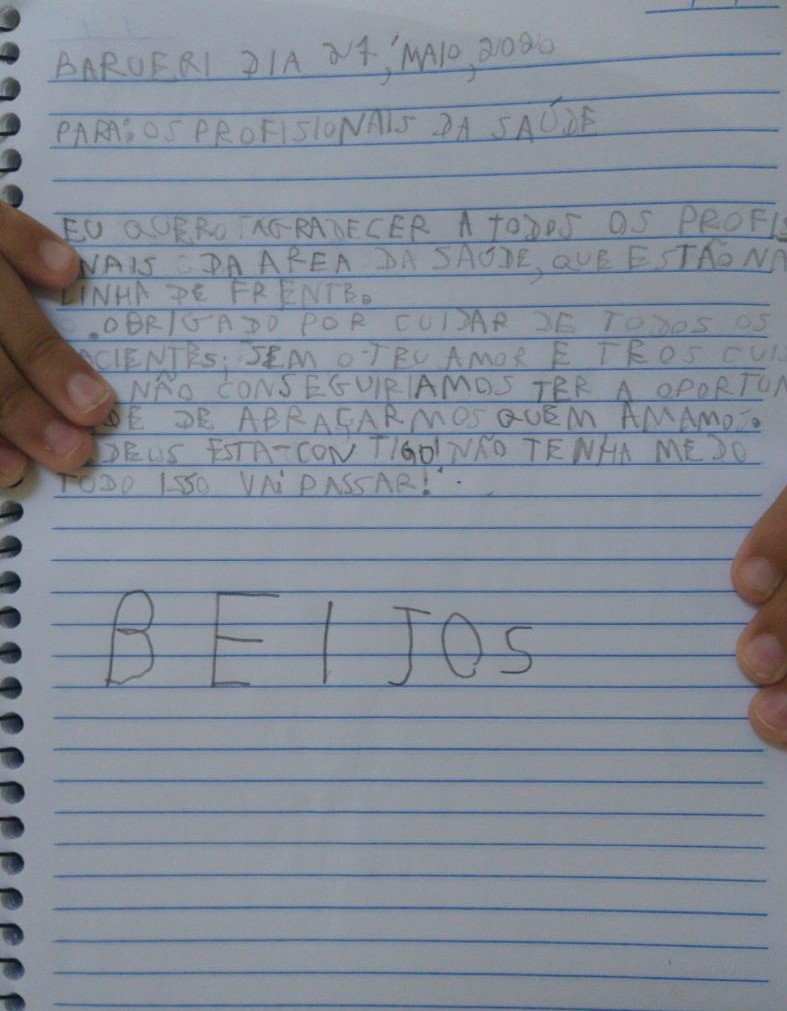 BARUERI DIA 27, MAIO, 2020
PARA: OS PROFISIONAIS DA SAÚDE
EU QUERO AGRADECER A TODOS OS PROFIS
NAIS DA AREA DA SAÚDE, QUE ESTÃO NA
LINHA DE FRENTE.
.OBRIGADO POR CUIDAR DE TODOS OS
ACIENTES; SEM O TEU AMOR E TEOS CUI
NÃO CONSEGUIRIAMOS TER A OPORTUN
DE DE ABRAÇARMOS QUEM AMAMOS.
DEUS ESTA-CON TIGO! NÃO TENHA MEDO
TODO ISSO VAI PASSAR!
BEIJOS